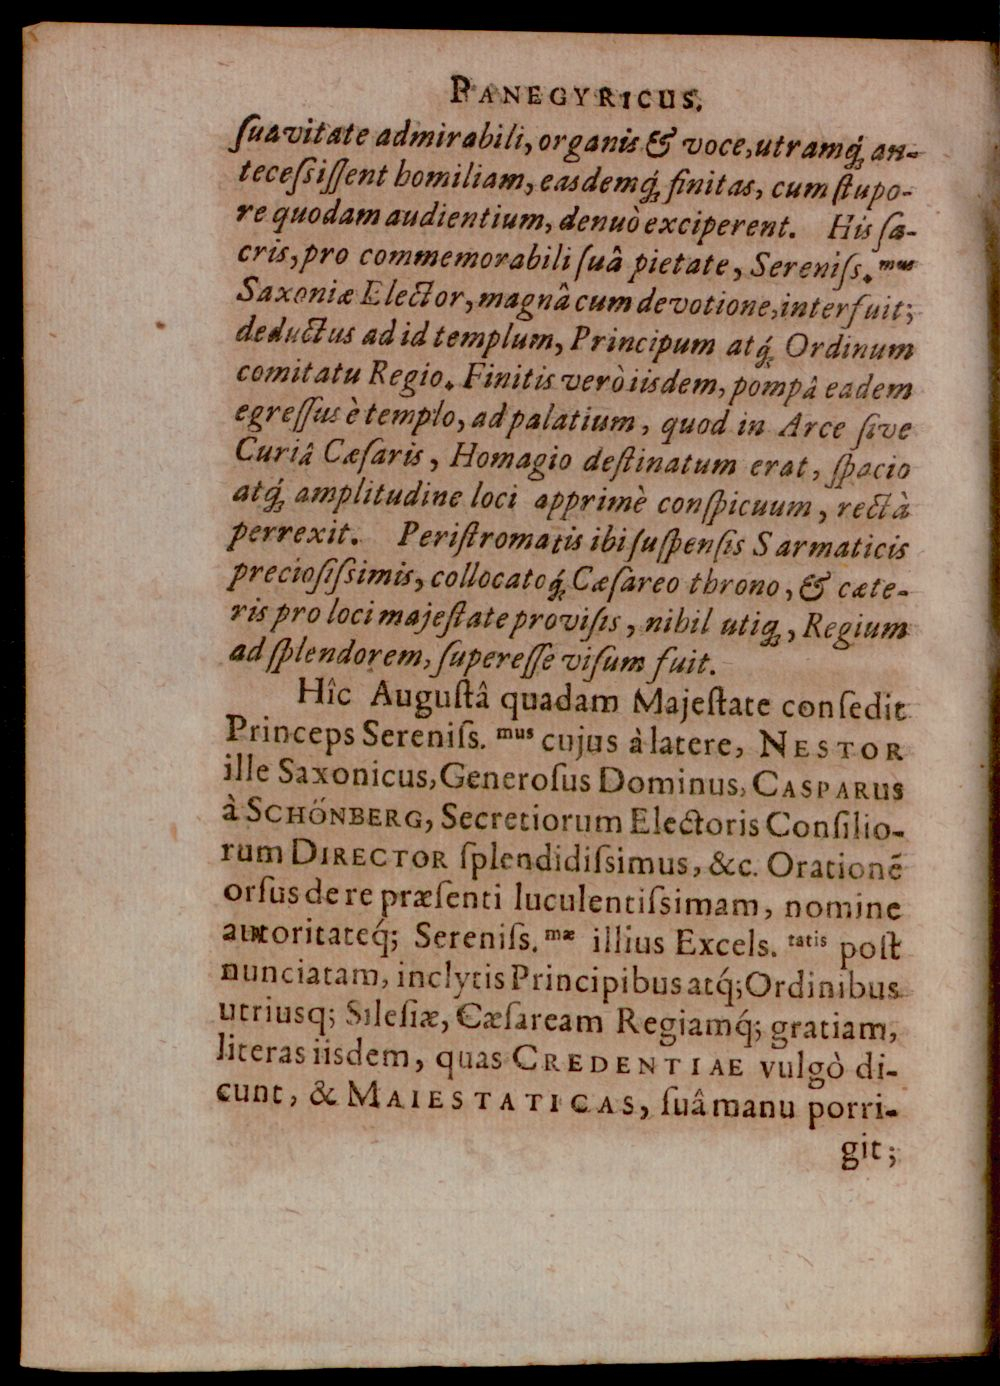 PANEGYRICUS.
ſuavitate admirabili, organis & voce, utramq́; an-
teceſsiſſent homiliam, easdemq́; finitas, cum ſtupo-
re quodam audientium, denuò exciperent. His ſa-
cris, pro commemorabili ſuâ pietate, Sereniſs.mus
Saxoniæ Elector, magnâ cum devotione, interfuit;
deductus ad id templum, Principum atq́; Ordinum
comitatu Regio. Finitis verò iisdem, pompâ eadem
egreſſus è templo, ad palatium, quod in Arce ſive
Curiâ Cæſaris, Homagio deſtinatum erat, ſpacio
atq́; amplitudine loci apprimè conſpicuum, rectà
perrexit. Periſtromatis ibi ſuſpenſis Sarmaticis
precioſiſsimis, collocatoq́; Cæſareo throno, & cæte-
ris pro loci majeſtate proviſis, nihil utiq;, Regium
ad ſplendorem, ſupereſſe viſum fuit.
Hîc Auguſtâ quadam Majeſtate conſedit
Princeps Sereniſs.mus cujus à latere, NESTOR
ille Saxonicus, Generoſus Dominus, CASPARUS
à SCHÖNBERG, Secretiorum Electoris Conſilio-
rum DIRECTOR ſplendidiſsimus, &c. Orationẽ
orſus de re præſenti luculentiſsimam, nomine
autoritateq́; Sereniſs.mæ illius Excels.tatis poſt
nunciatam, inclytis Principibus atq́; Ordinibus
utriusq; Sileſiæ, Cæſaream Regiamq́; gratiam,
literas iisdem, quas CREDENTIAE vulgò di-
cunt, & MAIESTATICAS, ſuâ manu porri-
git;